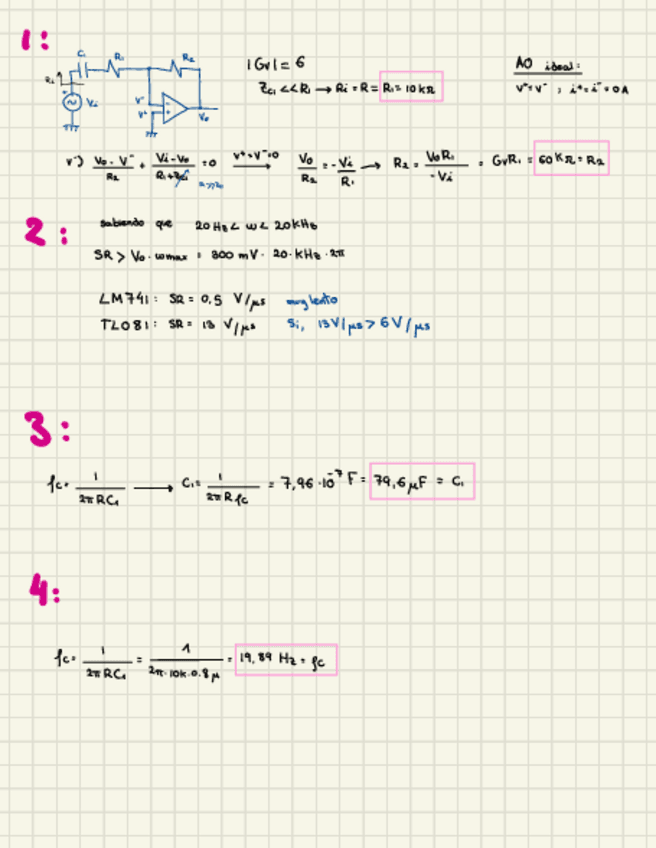 1:
C₁ R₁ R₂
Ri Vi V⁻ V⁺ Vo
|Gv| = 6
Zc₁ << R₁ → Ri = R = R₁ = 10 kΩ
AO ideal:
V⁺=V⁻ ; i⁺=i⁻=0A
V⁻) (Vo - V⁻)/R₂ + (Vi-Vo)/(R₁+Zc₁) = 0 V⁺=V⁻=0 → Vo/R₂ = -Vi/R₁ → R₂ = VoR₁/-Vi = GvR₁ = 60 kΩ = R₂
2:
sabiendo que 20 Hz < w < 20 kHz
SR > Vo · wmax = 300 mV · 20 · kHz · 2π
LM741: SR = 0,5 V/μs muy lento
TL081: SR = 13 V/μs Si, 13V/μs > 6 V/μs
3:
fc = 1/(2πRC₁) → C₁ = 1/(2πRfc) = 7,96 · 10⁻⁷ F = 79,6 μF = C₁
4:
fc = 1/(2πRC₁) = 1/(2π·10k·0.8μ) = 19,89 Hz = fc